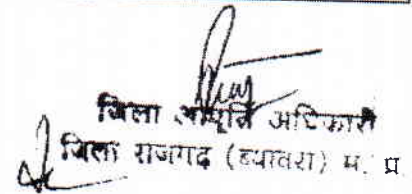 जिला आपूर्ति अधिकारी
जिला राजगढ़ (ब्यावरा) म. प्र